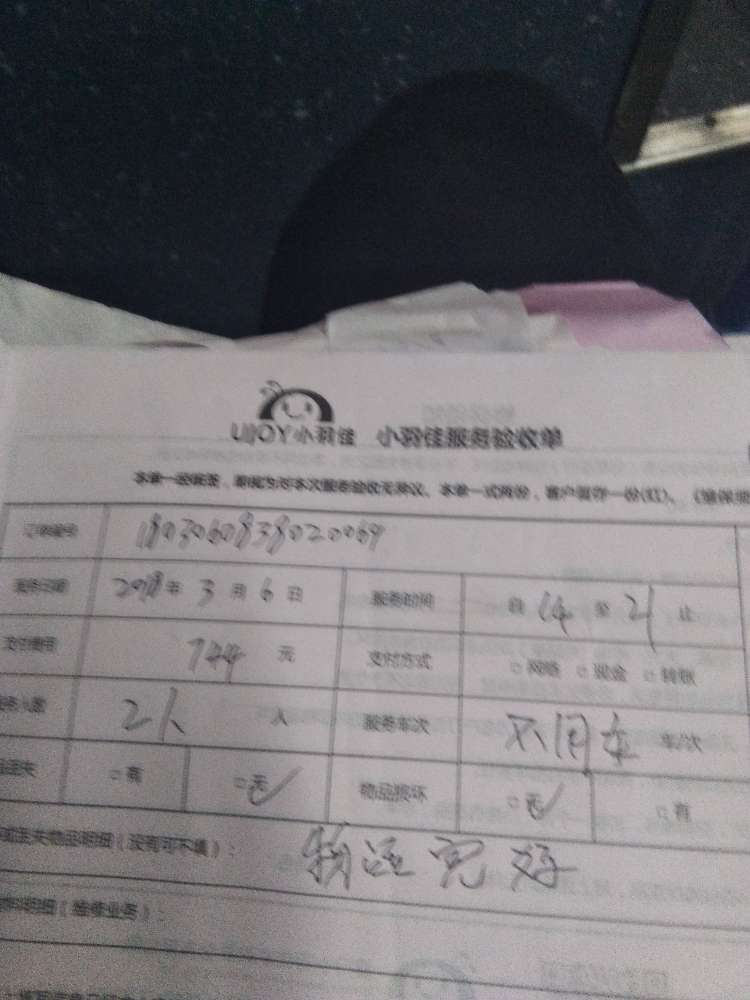 UJOY小羽佳 小羽佳服务验收单
本单一经签签,即视为对本次服务验收无异议。本单一式两份,客户留存一份(红)。
订单编号 1803060838020069
服务日期 2018年3月6日 服务时间 自14至21止
支付费用 744元 支付方式 □网络 □现金 □转账
务人数 2人 人 服务车次 不用车 车/次
品丢失 □有 □无 物品损坏 □无 □有
或丢失物品明细(没有可不填): 物品完好
料明细(维修业务):